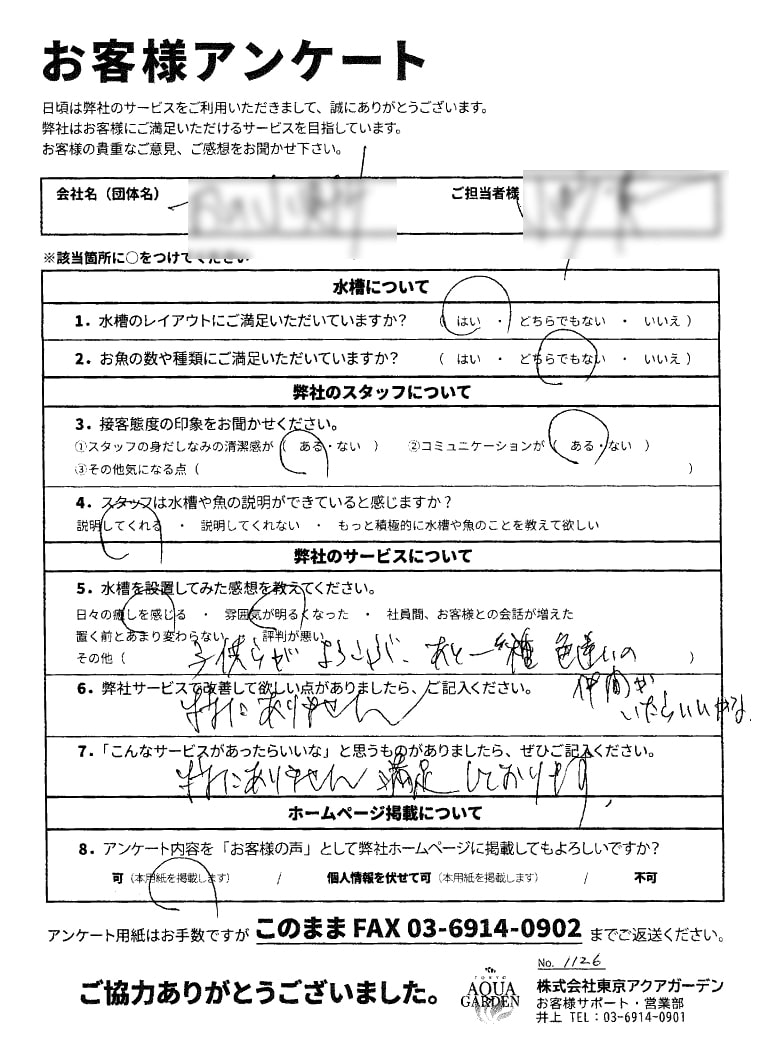 お客様アンケート
日頃は弊社のサービスをご利用いただきまして、誠にありがとうございます。
弊社はお客様にご満足いただけるサービスを目指しています。
お客様の貴重なご意見、ご感想をお聞かせ下さい。
会社名（団体名） ご担当者様
※該当箇所に○をつけてください
水槽について
1. 水槽のレイアウトにご満足いただいていますか？ （ はい ・ どちらでもない ・ いいえ ）
2. お魚の数や種類にご満足いただいていますか？ （ はい ・ どちらでもない ・ いいえ ）
弊社のスタッフについて
3. 接客態度の印象をお聞かせください。
①スタッフの身だしなみの清潔感が（ ある・ない ） ②コミュニケーションが（ ある・ない ）
③その他気になる点（ ）
4. スタッフは水槽や魚の説明ができていると感じますか？
説明してくれる ・ 説明してくれない ・ もっと積極的に水槽や魚のことを教えて欲しい
弊社のサービスについて
5. 水槽を設置してみた感想を教えてください。
日々の癒しを感じる ・ 雰囲気が明るくなった ・ 社員間、お客様との会話が増えた
置く前とあまり変わらない ・ 評判が悪い
その他（ 子供らがよろこぶ、あと一種 色違いの ）
仲間が
いたらいいかな
6. 弊社サービスで改善して欲しい点がありましたら、ご記入ください。
特にありません
7.「こんなサービスがあったらいいな」と思うものがありましたら、ぜひご記入ください。
特にありません 満足しております
ホームページ掲載について
8. アンケート内容を「お客様の声」として弊社ホームページに掲載してもよろしいですか？
可（本用紙を掲載します） / 個人情報を伏せて可（本用紙を掲載します） / 不可
アンケート用紙はお手数ですが このまま FAX 03-6914-0902 までご返送ください。
No. 1126
ご協力ありがとうございました。
TOKYO
AQUA
GARDEN
株式会社東京アクアガーデン
お客様サポート・営業部
井上 TEL：03-6914-0901